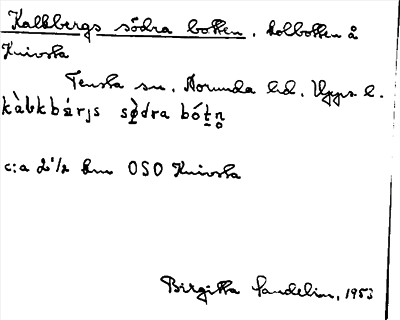 Kalkbergs södra botten, kolbotten å
Knivsta
Tensta sn. Norunda hd. Upps. l.
kàlkbǽrjs sø̀dra bót̠n̥
c:a 2 1/2 km OSO Knivsta
Birgitta Sandelin, 1953